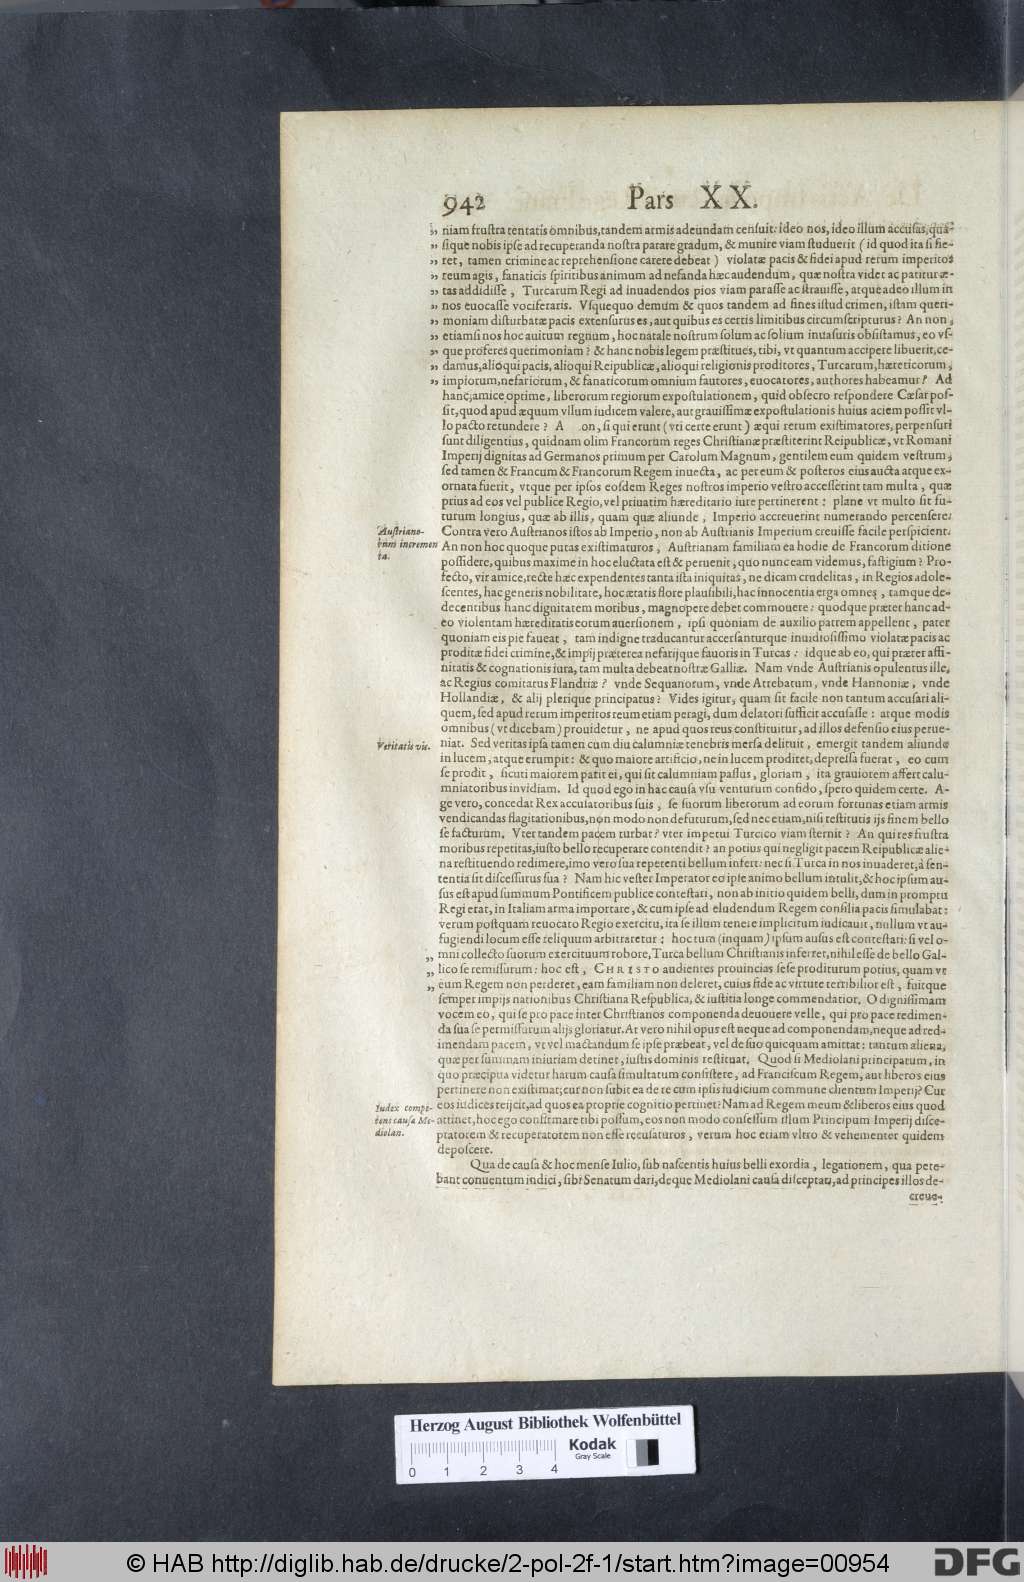 942 Pars XX.
„ niam frustra tentatis omnibus, tandem armis adeundam censuit: ideo nos, ideo illum accusas, qua-
„ sique nobis ipse ad recuperanda nostra parare gradum, & munire viam studuerit (id quod ita si fie-
„ ret, tamen crimine ac reprehensione carere debeat) violatæ pacis & fidei apud rerum imperitos
„ reum agis, fanaticis spiritibus animum ad nefanda hæc audendum, quæ nostra videt ac patitur æ-
„ tas addidisse, Turcarum Regi ad inuadendos pios viam parasse ac strauisse, atque adeo illum in
„ nos euocasse vociferaris. Vsquequo demum & quos tandem ad fines istud crimen, istam queri-
„ moniam disturbatæ pacis extensurus es, aut quibus es certis limitibus circumscripturus? An non,
„ etiamsi nos hoc auitum regnum, hoc natale nostrum solum ac solium inuasuris obsistamus, eo vs-
„ que proferes querimoniam? & hanc nobis legem præstitues, tibi, vt quantum accipere libuerit, ce-
„ damus, alioqui pacis, alioqui Reipublicæ, alioqui religionis proditores, Turcarum, hæreticorum,
„ impiorum, nefariorum, & fanaticorum omnium fautores, euocatores, authores habeamur? Ad
hanc, amice optime, liberorum regiorum expostulationem, quid obsecro respondere Cæsar pos-
sit, quod apud æquum vllum iudicem valere, aut grauissimæ expostulationis huius aciem possit vl-
lo pacto retundere? A on, si qui erunt (vti certe erunt) æqui rerum existimatores, perpensuri
sunt diligentius, quidnam olim Francorum reges Christianæ præstiterint Reipublicæ, vt Romani
Imperij dignitas ad Germanos primum per Carolum Magnum, gentilem eum quidem vestrum,
sed tamen & Francum & Francorum Regem inuecta, ac per eum & posteros eius aucta atque ex-
ornata fuerit, vtque per ipsos eosdem Reges nostros imperio vestro accesserint tam multa, quæ
prius ad eos vel publice Regio, vel priuatim hæreditario iure pertinerent: plane vt multo sit fu-
turum longius, quæ ab illis, quam quæ aliunde, Imperio accreuerint numerando percensere:
Austriano-
rum incremen
ta.
Contra vero Austrianos istos ab Imperio, non ab Austrianis Imperium creuisse facile perspicient.
An non hoc quoque putas existimaturos, Austrianam familiam ea hodie de Francorum ditione
possidere, quibus maxime in hoc eluctata est & peruenit, quo nunc eam videmus, fastigium? Pro-
fecto, vir amice, recte hæc expendentes tanta ista iniquitas, ne dicam crudelitas, in Regios adole-
scentes, hac generis nobilitate, hoc ætatis flore plausibili, hac innocentia erga omnes, tamque de-
decentibus hanc dignitatem moribus, magnopere debet commouere: quodque præter hanc ad-
eo violentam hæreditatis eorum auersionem, ipsi quoniam de auxilio patrem appellent, pater
quoniam eis pie faueat, tam indigne traducantur accersanturque inuidiosissimo violatæ pacis ac
proditæ fidei crimine, & impij præterea nefarijque fauoris in Turcas: idque ab eo, qui præter affi-
nitatis & cognationis iura, tam multa debeat nostræ Galliæ. Nam vnde Austrianis opulentus ille,
ac Regius comitatus Flandriæ? vnde Sequanorum, vnde Atrebatum, vnde Hannoniæ, vnde
Hollandiæ, & alij plerique principatus? Vides igitur, quam sit facile non tantum accusari ali-
quem, sed apud rerum imperitos reum etiam peragi, dum delatori sufficit accusasse: atque modis
omnibus (vt dicebam) prouidetur, ne apud quos reus constituitur, ad illos defensio eius perue-
Veritatis vis.
niat. Sed veritas ipsa tamen cum diu calumniæ tenebris mersa delituit, emergit tandem aliunde
in lucem, atque erumpit: & quo maiore artificio, ne in lucem prodiret, depressa fuerat, eo cum
se prodit, sicuti maiorem parit ei, qui sit calumniam passus, gloriam, ita grauiorem affert calu-
mniatoribus inuidiam. Id quod ego in hac causa vsu venturum confido, spero quidem certe. A-
ge vero, concedat Rex accusatoribus suis, se suorum liberorum ad eorum fortunas etiam armis
vendicandas flagitationibus, non modo non defuturum, sed nec etiam, nisi restitutis ijs finem bello
se facturum. Vter tandem pacem turbat? vter impetui Turcico viam sternit? An qui res frustra
moribus repetitas, iusto bello recuperare contendit? an potius qui negligit pacem Reipublicæ alie-
na restituendo redimere, imo vero sua repetenti bellum infert: nec si Turca in nos inuaderet, à sen-
tentia sit discessurus sua? Nam hic vester Imperator eo ipse animo bellum intulit, & hoc ipsum au-
sus est apud summum Pontificem publice contestari, non ab initio quidem belli, dum in promptu
Regi erat, in Italiam arma importare, & cum ipse ad eludendum Regem consilia pacis simulabat:
verum postquam reuocato Regio exercitu, ita se illum tenere implicitum iudicauit, nullum vt au-
fugiendi locum esse reliquum arbitraretur: hoc tum (inquam) ipsum ausus est contestari: si vel o-
„ mni collecto suorum exercituum robore, Turca bellum Christianis inferret, nihil esse de bello Gal-
„ lico se remissurum: hoc est, CHRISTO audientes prouincias sese proditurum potius, quam vt
„ eum Regem non perderet, eam familiam non deleret, cuius fide ac virtute terribilior est, fuitque
semper impijs nationibus Christiana Respublica, & iustitia longe commendatior. O dignissimam
vocem eo, qui se pro pace inter Christianos componenda deuouere velle, qui pro pace redimen-
da sua se permissurum alijs gloriatur. At vero nihil opus est neque ad componendam, neque ad red-
imendam pacem, vt vel mactandum se ipse præbeat, vel de suo quicquam amittat: tantum aliena,
quæ per summam iniuriam detinet, iustis dominis restituat. Quod si Mediolani principatum, in
quo præcipua videtur harum causa simultatum consistere, ad Franciscum Regem, aut liberos eius
pertinere non existimat; cur non subit ea de re cum ipsis iudicium commune clientum Imperij? Cur
Iudex compe-
tens causæ Me-
diolan.
eos iudices reijcit, ad quos ea proprie cognitio pertinet? Nam ad Regem meum & liberos eius quod
attinet, hoc ego confirmare tibi possum, eos non modo consessum illum Principum Imperij disce-
ptatorem & recuperatorem non esse recusaturos, verum hoc etiam vltro & vehementer quidem
deposcere.
Qua de causa & hoc mense Iulio, sub nascentis huius belli exordia, legationem, qua pete-
bant conuentum indici, sibi Senatum dari, deque Mediolani causa disceptari, ad principes illos de-
creue-
Herzog August Bibliothek Wolfenbüttel
0 1 2 3 4
Kodak
Gray Scale
© HAB http://diglib.hab.de/drucke/2-pol-2f-1/start.htm?image=00954
DFG